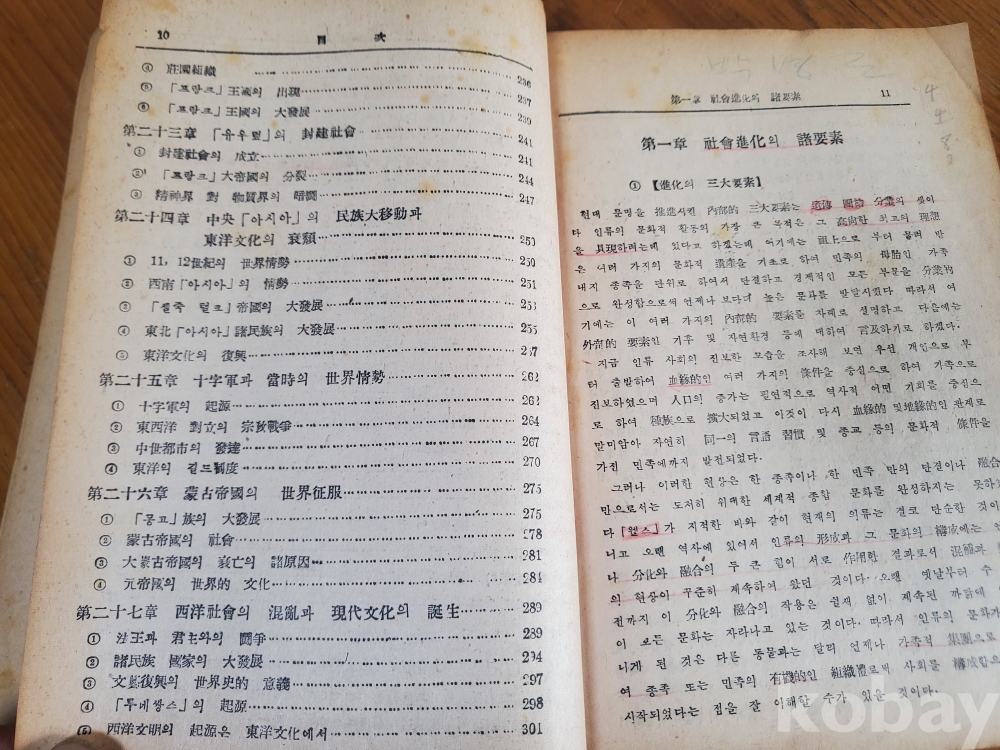 10 目 次
④ 莊園組織 236
⑤ 「프랑크」王國의 出現 237
⑥ 「프랑크」王國의 大發展 239
第二十三章 「유우럽」의 封建社會 241
① 封建社會의 成立 241
② 「프랑크」大帝國의 分裂 244
③ 精神界 對 物質界의 暗鬪 247
第二十四章 中央「아시아」의 民族大移動과
東洋文化의 衰頹 250
① 11, 12世紀의 世界情勢 250
② 西南「아시아」의 情勢 251
③ 「셀죽 털크」帝國의 大發展 253
④ 東北「아시아」諸民族의 大發展 255
⑤ 東洋文化의 復興 257
第二十五章 十字軍과 當時의 世界情勢 262
① 十字軍의 起源 262
② 東西洋 對立의 宗敎戰爭 264
③ 中世都市의 發達 267
④ 東洋의 길드制度 270
第二十六章 蒙古帝國의 世界征服 275
① 「몽고」族의 大發展 275
② 蒙古帝國의 社會 278
③ 大蒙古帝國의 衰亡의 諸原因 281
④ 元帝國의 世界的 文化 284
第二十七章 西洋社會의 混亂과 現代文化의 誕生 289
① 法王과 君主와의 鬪爭 289
② 諸民族 國家의 大發展 294
③ 文藝復興의 世界史的 意義 297
④ 「루네쌍스」의 起源 298
⑤ 西洋文明의 起源은 東洋文化에서 301
第一章 社會進化의 諸要素 11
第一章 社會進化의 諸要素
① 【進化의 三大要素】
현대 문명을 推進시킨 內部的 三大要素는 遺傳 團結 分業의 셋이
다 人류의 문화적 활동의 가장 큰 목적은 그 高尙한 최고의 理想
을 具現하려는데 있다고 하겠는데 여기에는 頭上으로 부터 물려 받
은 여러 가지의 문화적 遺産을 기초로 하여 민족의 母胎인 가족
내지 종족을 단위로 하여서 단결하고 경제적인 모든 부문을 分業的
으로 완성함으로써 언제나 보다더 높은 문화를 발달시켰다 따라서 여
기에는 이 여러 가지의 內部的 要素를 차례로 설명하고 다음에는
外部的 要素인 기후 및 자연환경 등에 대하여 言及하기로 하겠다.
지금 인류 사회의 진보한 모습을 조사해 보면 우선 개인으로 부
터 출발하여 血緣的인 여러 가지의 條件을 중심으로 하여 가족으로
진보하였으며 人口의 증가는 필연적으로 역사적 어떤 기회를 중심으
로 하여 種族으로 擴大되었고 이것이 다시 血緣的 및地緣的인 관계로
말미암아 자연히 同一의 言語 習慣 및 종교 등의 문화적 條件을
가진 민족에까지 발전되었다.
그러나 이러한 현상은 한 종족이나 한 민족 만의 단결이나 融合
만으로서는 도저히 위대한 세계적 종합 문화를 완성하지는 못하
다「웰스」가 지적한 바와 같이 현재의 의류는 결코 단순한 것이
니고 오랜 역사에 있어서 인류의 形成과 그 문화의 構成에는
나 分化와 融合의 두 큰 힘이 서로 作用한 결과로서 混淆과
의 현상이 꾸준히 계속하여 왔던 것이다. 오랜 옛날부터 수
전까지 이 分化와 融合의 작용은 쉴새 없이 계속된 까닭에
이 모든 문화는 자라나고 있는 것이다. 따라서 인류의 문화가
니게 된 것은 다른 동물과는 달리 언제나 가족적 集團으로
여 종족 또는 민족의 有機的인 組織體로써 사회를 構成함으
시작되었다는 점을 잘 이해할 수가 있을 것이다.
kobay